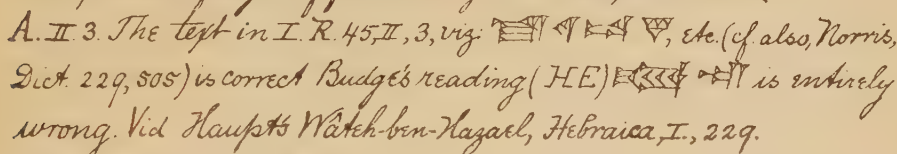 A. II 3. The text in I. R. 45, II, 3, viz. etc. (cf. also, Norris,
Dict. 229, 505) is correct Budge's reading (HE) is entirely
wrong. Vid Haupt's Wâteh-ben-Hazael, Hebraica, I., 229.